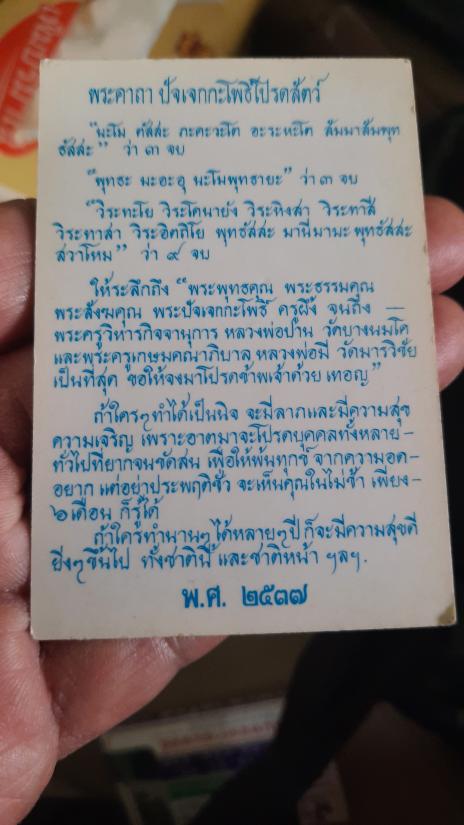 พระคาถา ปัจเจกกะโพธิโปรดสัตว์
"นะโม ตัสสะ ภะคะวะโต อะระหะโต สัมมาสัมพุท
ธัสสะ" ว่า ๓ จบ
"พุทธะ มะอะอุ นะโมพุทธายะ" ว่า ๓ จบ
"วิระทะโย วิระโคนายัง วิระหิงสา วิระทาสี
วิระทาสา วิระอิตถิโย พุทธัสสะ มานีมามะ พุทธัสสะ
สวาโหม" ว่า ๙ จบ
ให้ระลึกถึง "พระพุทธคุณ พระธรรมคุณ
พระสังฆคุณ พระปัจเจกกะโพธิ์ ครูผึ้ง จนถึง —
พระครูวิหารกิจจานุการ หลวงพ่อปาน วัดบางนมโค
และพระครูเกษมคณาภิบาล หลวงพ่อมี วัดมารวิชัย
เป็นที่สุด ขอให้จงมาโปรดข้าพเจ้าด้วย เทอญ"
ถ้าใครๆทำได้เป็นนิจ จะมีลาภและมีความสุข
ความเจริญ เพราะอาตมาจะโปรดบุคคลทั้งหลาย —
ทั่วไปที่ยากจนขัดสน เพื่อให้พ้นทุกข์ จากความอด —
อยาก แต่อย่าประพฤติชั่ว จะเห็นคุณในไม่ช้า เพียง —
๖ เดือน ก็รู้ได้
ถ้าใครทำนานๆ ได้หลายๆปี ก็จะมีความสุขดี
ยิ่งๆขึ้นไป ทั้งชาตินี้ และชาติหน้า ฯลฯ.
พ.ศ. ๒๕๓๗